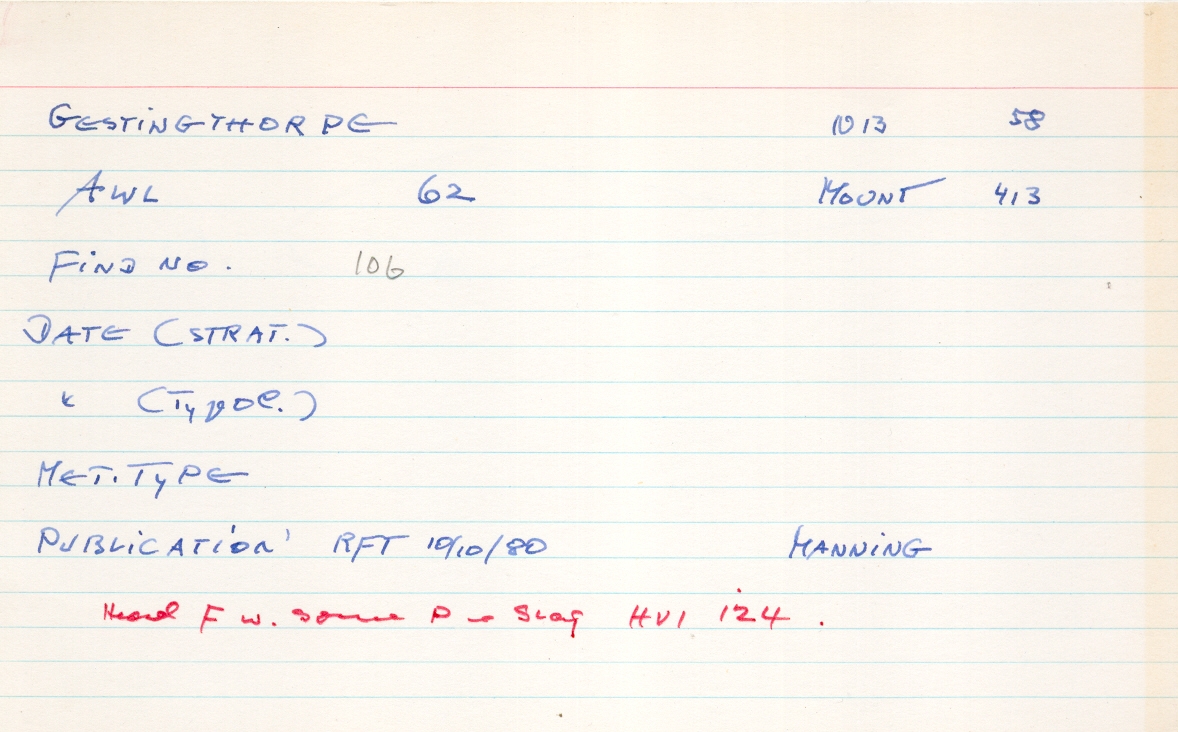 GESTINGTHORPE 1013 58
AWL 62 MOUNT 413
FIND NO. 106
DATE (STRAT.)
" (TYPOL.)
MET. TYPE
PUBLICATION' RFT 10/10/80 MANNING
F w. some P Slag HV1 124.